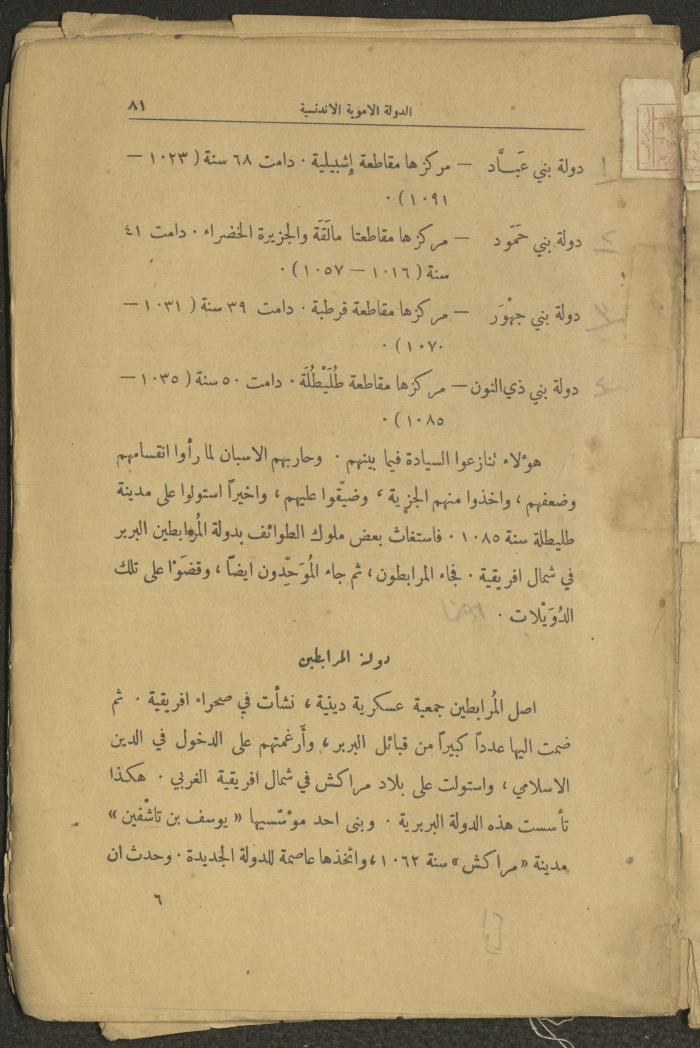 الدولة الاموية الاندلسية ٨١
١ دولة بني عَبَّاد — مركزها مقاطعة إِشبيلية ٠ دامت ٦٨ سنة ( ١٠٢٣ —
١٠٩١ ) ٠
٢ دولة بني حَمّود — مركزها مقاطعتا مالَقَة والجزيرة الخضراء ٠ دامت ٤١
سنة ( ١٠١٦ — ١٠٥٧ ) ٠
٣ دولة بني جهْوَر — مركزها مقاطعة قرطبة ٠ دامت ٣٩ سنة ( ١٠٣١ —
١٠٧٠ ) ٠
٤ دولة بني ذي النون — مركزها مقاطعة طُلَيْطُلَة ٠ دامت ٥٠ سنة ( ١٠٣٥ —
١٠٨٥ ) ٠
هؤلاء تنازعوا السيادة فيما بينهم ٠ وحاربهم الاسبان لما رأوا انقسامهم
وضعفهم ، واخذوا منهم الجزية ، وضيّقوا عليهم ، واخيراً استولوا على مدينة
طليطلة سنة ١٠٨٥ ٠ فاستغاث بعض ملوك الطوائف بدولة المُرابطين البربر
في شمال افريقية ٠ فجاء المرابطون ، ثم جاء المُوَحِّدون ايضاً ، وقضَوْا على تلك
الدُوَيْلات ٠
دولة المرابطين
اصل المُرابطين جمعية عسكرية دينية ، نشأت في صحراء افريقية ٠ ثم
ضمت اليها عدداً كبيراً من قبائل البربر ، وأَرغمتهم على الدخول في الدين
الاسلامي ، واستولت على بلاد مراكش في شمال افريقية الغربي ٠ هكذا
تأسست هذه الدولة البربرية ٠ وبنى احد مؤسّسيها « يوسف بن تاشْفين »
مدينة « مراكش » سنة ١٠٦٢ ، واتخذها عاصمة للدولة الجديدة ٠ وحدث ان
٦